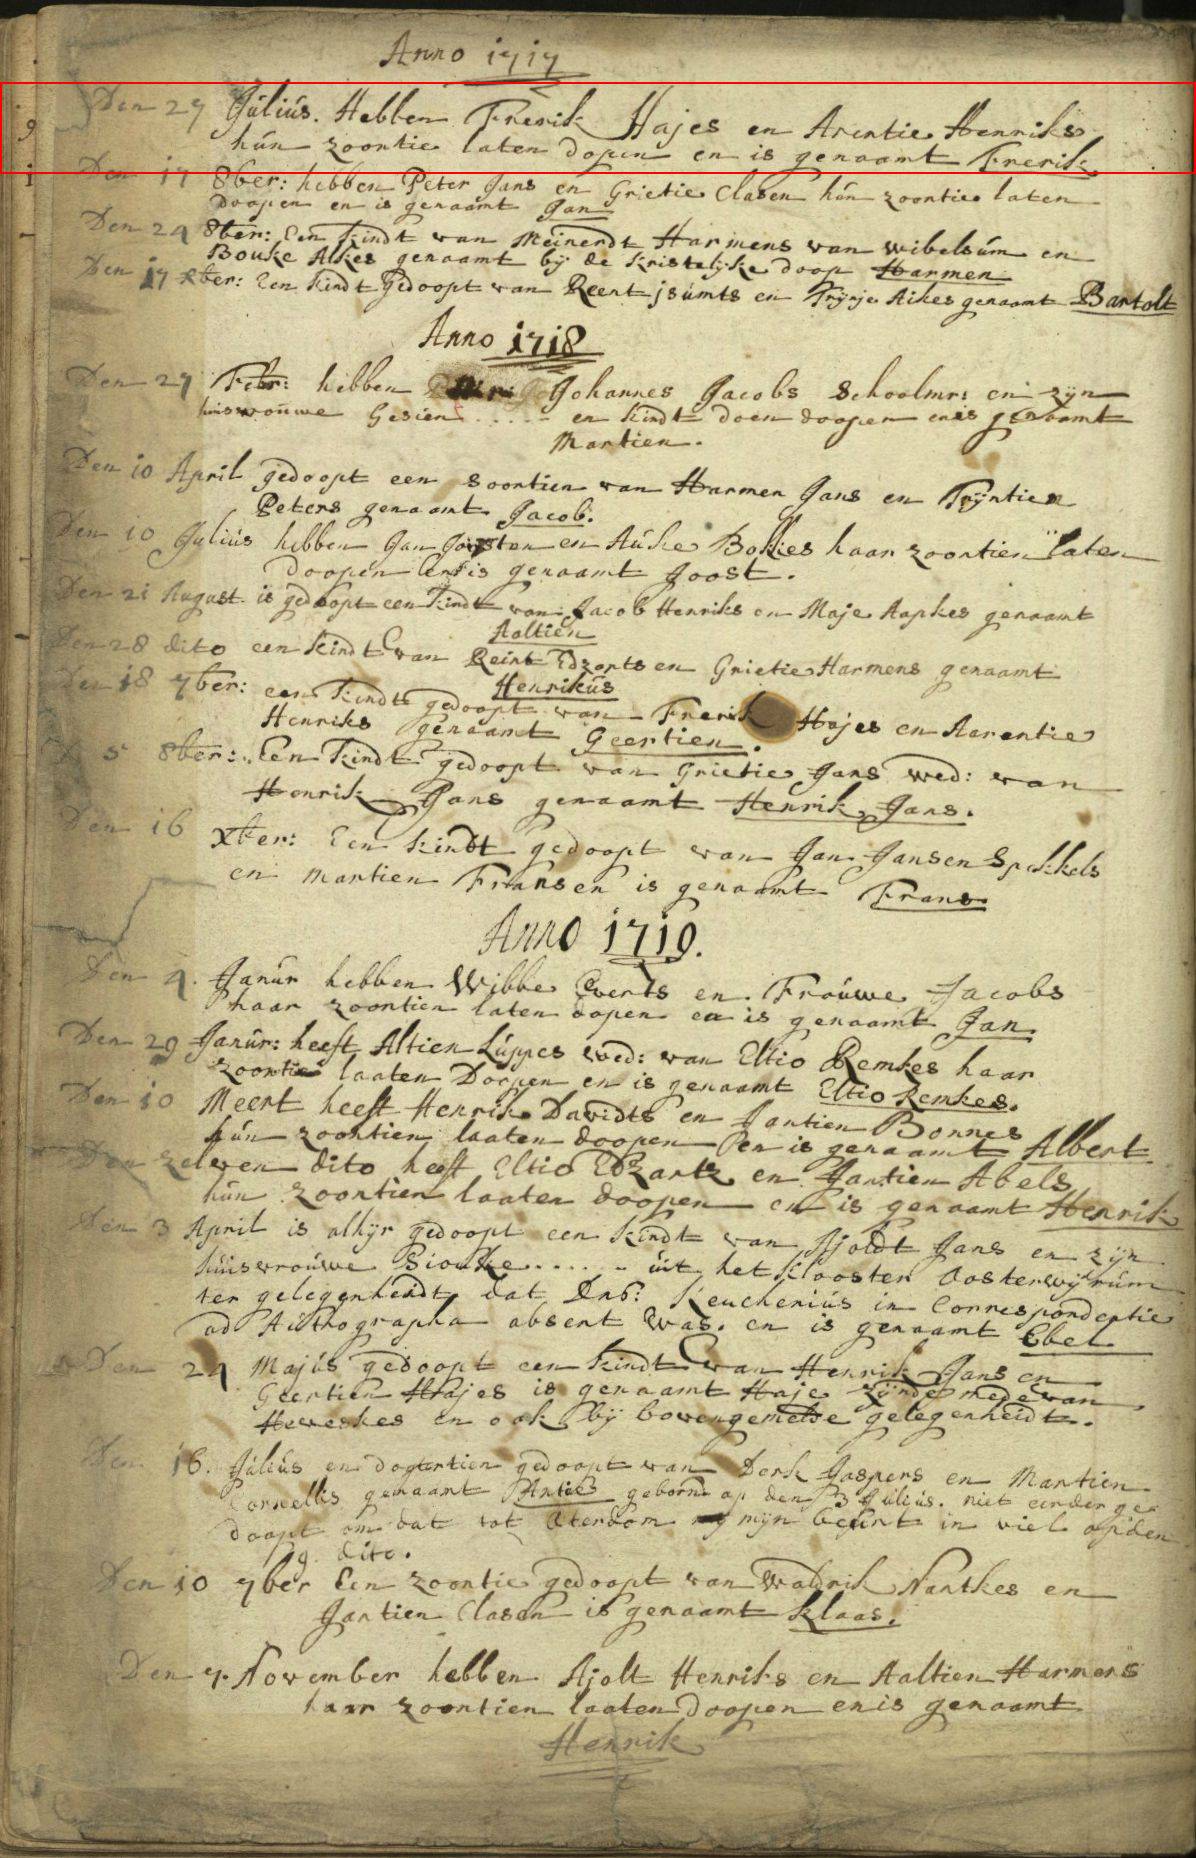 Anno 1717
Den 27 Julius. Hebben Frerik Hajes en Arentie Henriks
hun zoontie laten dopen en is genaamt Frerik
Den 17 8ber: hebben Peter Jans en Grietie Clasen hun zoontie laten
doopen en is genaamt Jan
Den 24 8ber: Een kindt van Meinerdt Harmens van wibelsum en
Bouke Alkes genaamt bij de kristelijke doop Harmen
Den 17 xber: Een kindt Gedoopt van Reent jsumts en Trijnje Aikes genaamt Bartolt
Anno 1718
Den 27 Febr: hebben Johannes Jacobs Schoolmr: en zijn
huiswouwe Gesien ..... en kindt doen doopen en is genaamt
Martien.
Den 10 April gedoopt een soontien van Harmen Jans en Trijntien
Peters genaamt Jacob.
Den 10 Julius hebben Jan Joosten en Auke Bokies haar zoontien laten
doopen en is genaamt Joost.
Den 21 August is gedoopt een kindt van Jacob Henriks en Maje Aapkes genaamt
Aaltien
Den 28 dito een kindt van Reint Edzarts en Grietie Harmens genaamt
Henrikus
Den 18 7ber: een kindt gedoopt van Frerik Hajes en Aarentie
Henriks genaamt Geertien.
D 5 8ber: Een kindt gedoopt van Grietie Jans wed: van
Henrik Jans genaamt Henrik Jans.
Den 16 xber: Een kindt gedoopt van Jan Jansen Spekkels
en Martien Fransen is genaamt Frans
Anno 1719.
Den 4. Janur hebben Wibbe Everts en Frouwe Jacobs
haar zoontien laten dopen en is genaamt Jan
Den 29 Janur: heeft Altien Luppes wed: van Eltio Remkes haar
zoontie laaten Doopen en is genaamt Eltio Remkes.
Den 10 Meert heeft Henrik Davidts en Jantien Bonnes
hun zoontien laaten doopen en is genaamt Albert
Den zelven dito heeft Eltio Edzartz en Jantien Abels
hun zoontien laaten doopen en is genaamt Henrik
Den 3 April is alhijr gedoopt een kindt van Ajoldt Jans en zijn
huisvrouwe Siouke ..... uit het klooster Oosterwijtum
ter gelegenheidt dat Ds: Keuchenius in Correspondentie
ad Authographa absent was. en is genaamt Ebel
Den 24 Majus gedoopt een kindt van Henrik Jans en
Geertien Hajes is genaamt Haje zijnde mede van
Heveskes en ook bij bovengemelde gelegenheidt.
Den 16. Julius en dogtertien gedoopt van Derk Jaspers en Martien
Cornellis genaamt Antie geboren op den 3 Julius. niet eerder ge
doopt om dat tot Oterdom mijn beurt in viel op den
9 dito.
Den 10 7ber Een zoontie gedoopt van Waldrik Nantkes en
Jantien Clasen is genaamt klaas.
Den 7. November hebben Ajolt Henriks en Aaltien Harmens
haar zoontien laaten doopen en is genaamt
Henrik